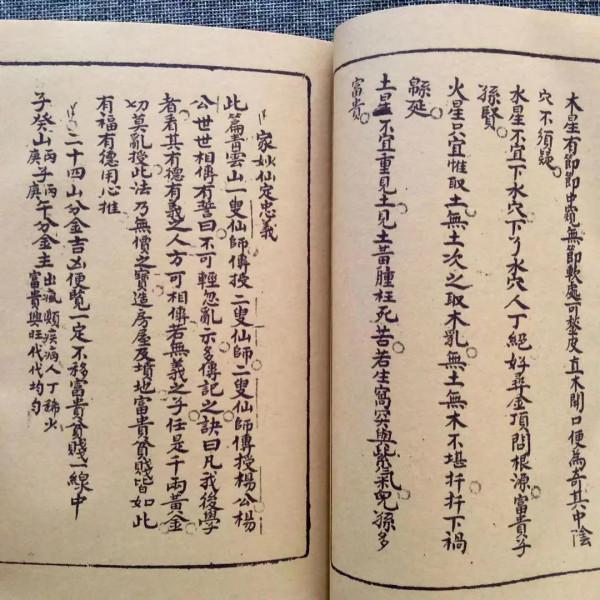 木星有節節中窺無節軟處可鑿皮直木開口便為奇其中陰
穴不須疑
水星不宜下水穴下了水穴人丁絕好尋金頂問根源富貴子
孫賢
火星只宜惟取土無土次之取木亂無土無木不堪扦扦下禍
緜延
土星不宜重見土見土黃腫枉死苦若生窩突與紫氣兒孫多
富貴
家妙仙定忠義
此篇青雲山一叟仙師傳授二叟仙師二叟仙師傳授楊公楊
公世世相傳有誓曰不可輕忽亂示多傳記之訣曰凡我後學
者看其有德有義之人方可相傳若無義之子任是千兩黃金
切莫亂授此法乃無價之寶造房屋及墳地富貴貧賤皆如此
有福有德用心推
二十四山分金吉凶便覽一定不移富貴貧賤一線中
子癸山丙子丙午分金主出瘋顛疾病人丁稀少
庚子庚午富貴興旺代代均勻